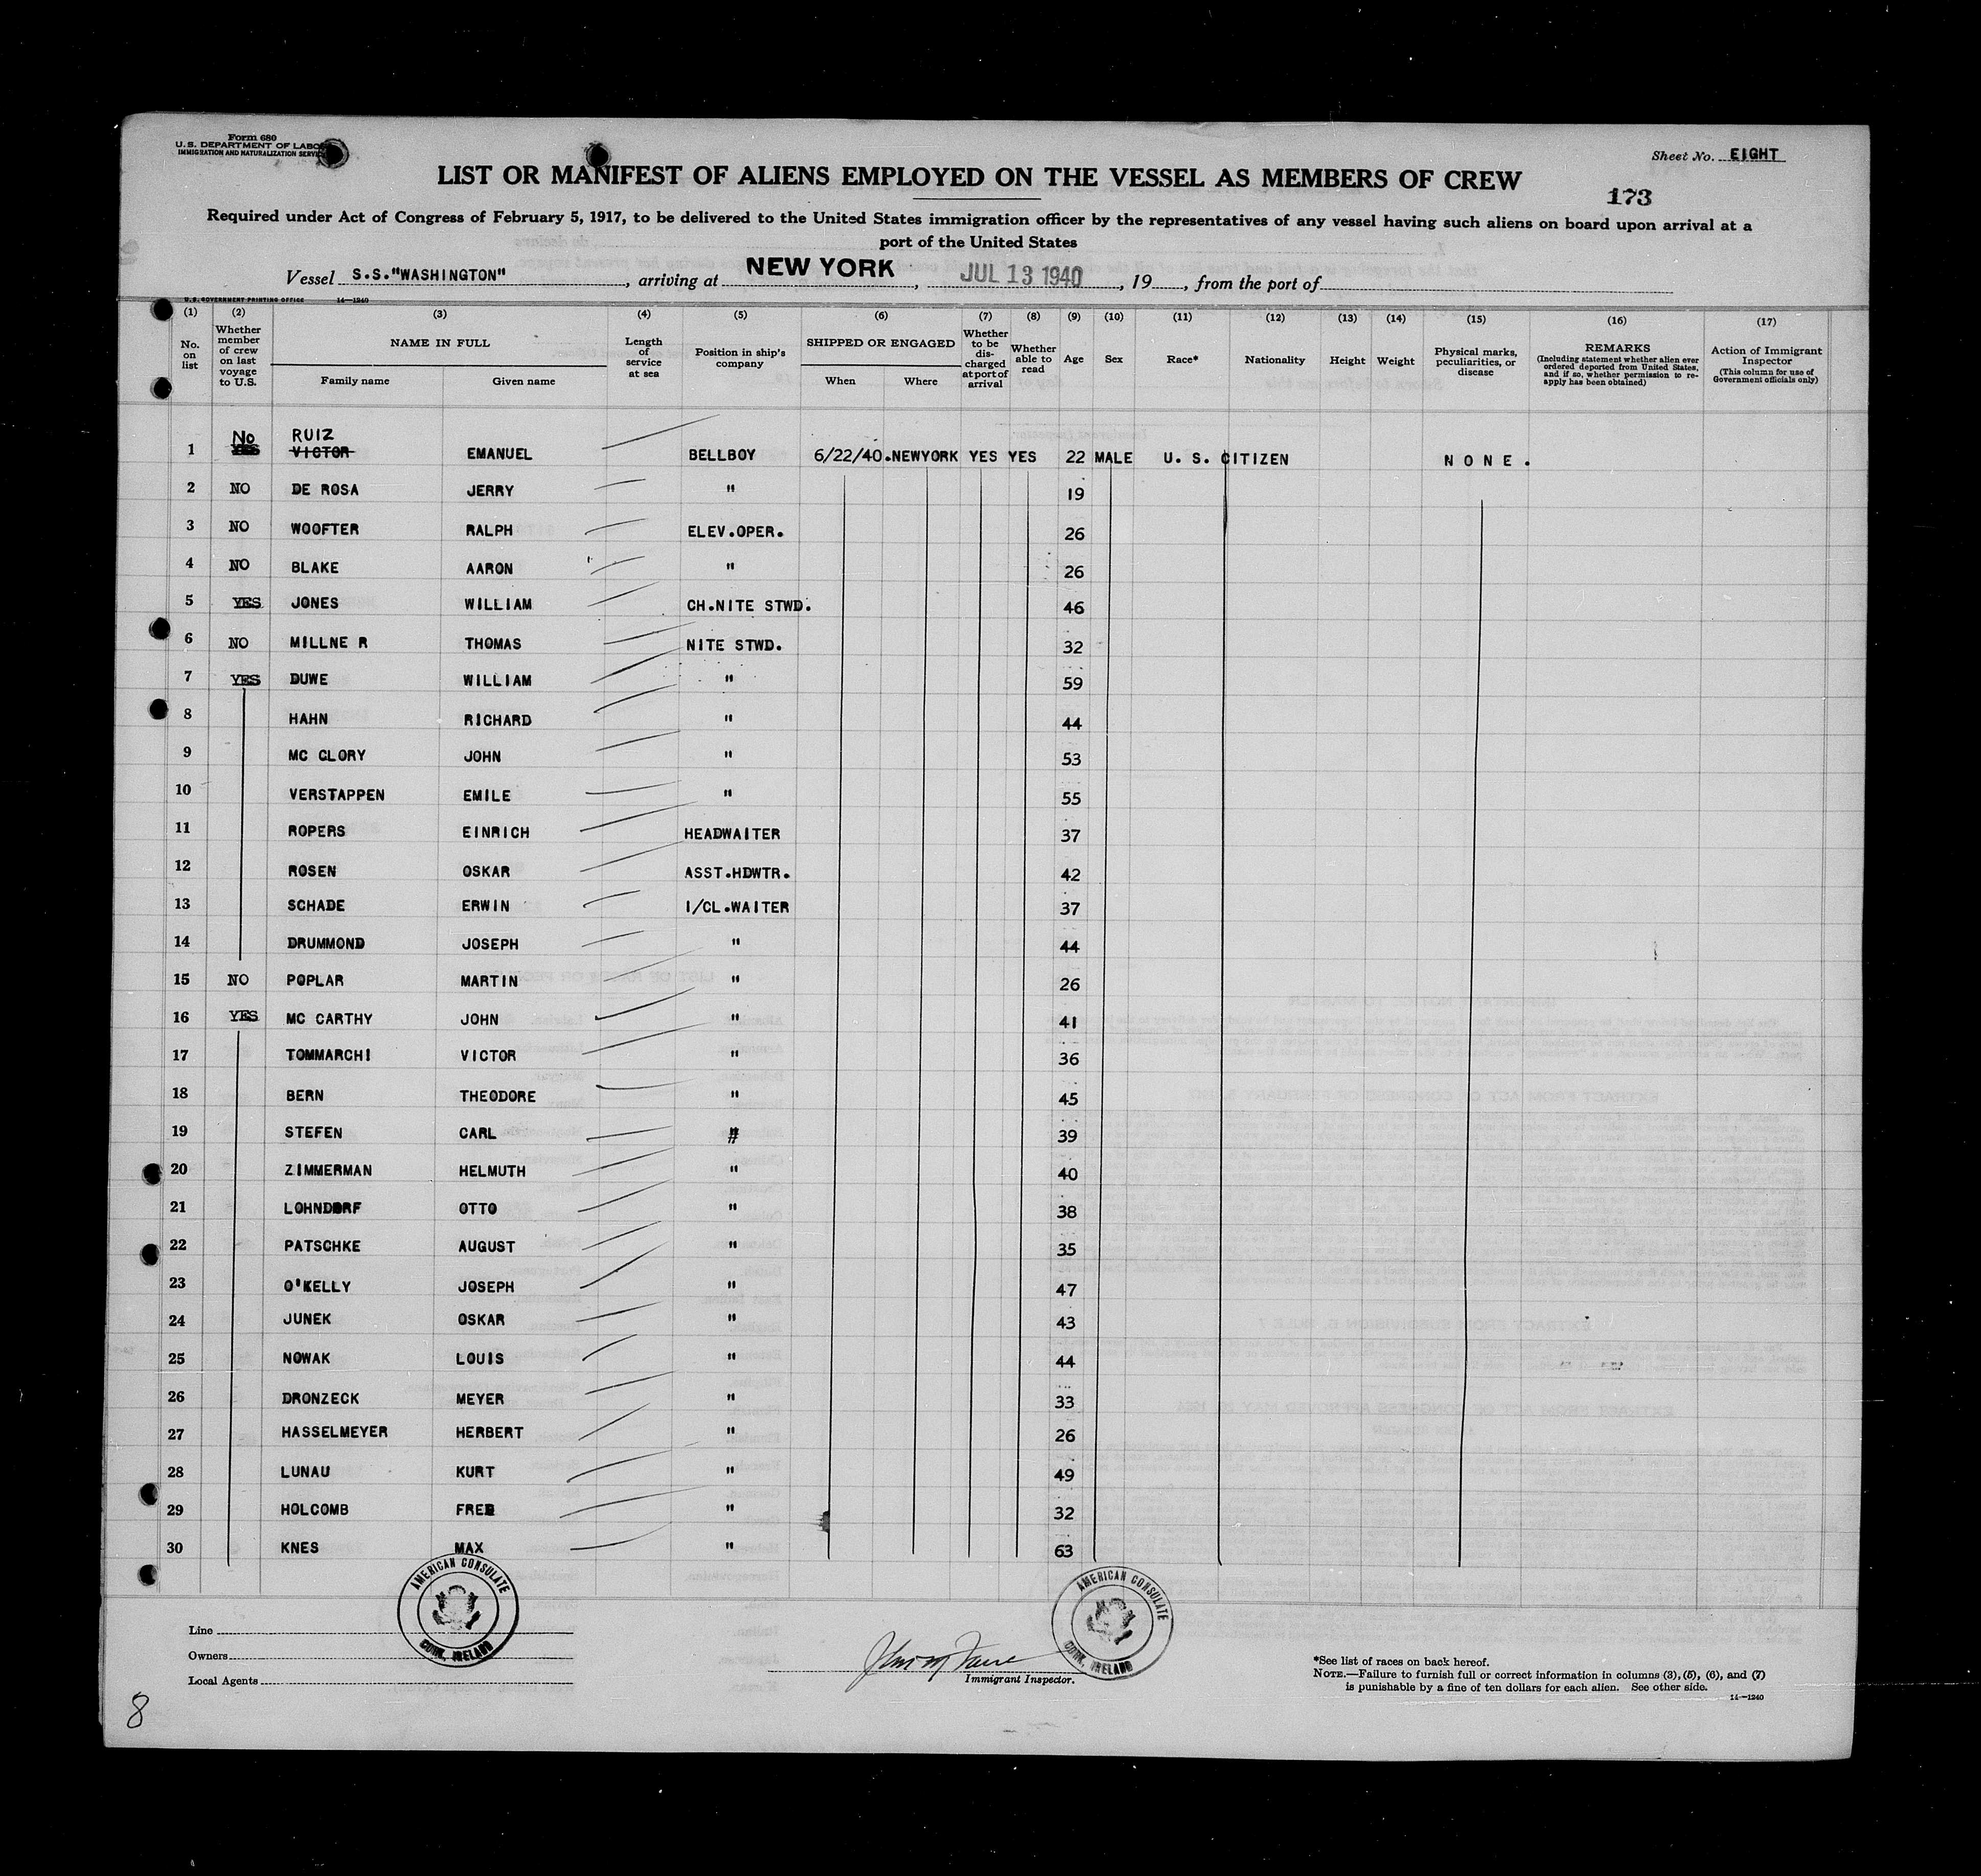 Form 680
U. S. DEPARTMENT OF LABOR
IMMIGRATION AND NATURALIZATION SERVICE
Sheet No. EIGHT
LIST OR MANIFEST OF ALIENS EMPLOYED ON THE VESSEL AS MEMBERS OF CREW
173
Required under Act of Congress of February 5, 1917, to be delivered to the United States immigration officer by the representatives of any vessel having such aliens on board upon arrival at a
port of the United States
Vessel S.S."WASHINGTON", arriving at NEW YORK, JUL 13 1940, 19, from the port of
U. S. GOVERNMENT PRINTING OFFICE 14—1240
(1) (2) (3) (4) (5) (6) (7) (8) (9) (10) (11) (12) (13) (14) (15) (16) (17)
No. on list
Whether member of crew on last voyage to U.S.
NAME IN FULL
Family name Given name
Length of service at sea
Position in ship's company
SHIPPED OR ENGAGED
When Where
Whether to be discharged at port of arrival
Whether able to read
Age
Sex
Race*
Nationality
Height
Weight
Physical marks, peculiarities, or disease
REMARKS
(Including statement whether alien ever ordered deported from United States, and if so, whether permission to re-apply has been obtained)
Action of Immigrant Inspector
(This column for use of Government officials only)
No RUIZ
1 YES VICTOR EMANUEL BELLBOY 6/22/40.NEWYORK YES YES 22 MALE U. S. CITIZEN N O N E .
2 NO DE ROSA JERRY " 19
3 NO WOOFTER RALPH ELEV.OPER. 26
4 NO BLAKE AARON " 26
5 YES JONES WILLIAM CH.NITE STWD. 46
6 NO MILLNE R THOMAS NITE STWD. 32
7 YES DUWE WILLIAM " 59
8 HAHN RICHARD " 44
9 MC GLORY JOHN " 53
10 VERSTAPPEN EMILE " 55
11 ROPERS EINRICH HEADWAITER 37
12 ROSEN OSKAR ASST.HDWTR. 42
13 SCHADE ERWIN I/CL.WAITER 37
14 DRUMMOND JOSEPH " 44
15 NO POPLAR MARTIN " 26
16 YES MC CARTHY JOHN " 41
17 TOMMARCHI VICTOR " 36
18 BERN THEODORE " 45
19 STEFEN CARL " 39
20 ZIMMERMAN HELMUTH " 40
21 LOHNDORF OTTO " 38
22 PATSCHKE AUGUST " 35
23 O'KELLY JOSEPH " 47
24 JUNEK OSKAR " 43
25 NOWAK LOUIS " 44
26 DRONZECK MEYER " 33
27 HASSELMEYER HERBERT " 26
28 LUNAU KURT " 49
29 HOLCOMB FRED " 32
30 KNES MAX " 63
AMERICAN CONSULATE
CORK, IRELAND
AMERICAN CONSULATE
CORK, IRELAND
Line
Owners
Local Agents
Immigrant Inspector.
*See list of races on back hereof.
NOTE.—Failure to furnish full or correct information in columns (3), (5), (6), and (7)
is punishable by a fine of ten dollars for each alien. See other side.
14—1240
8